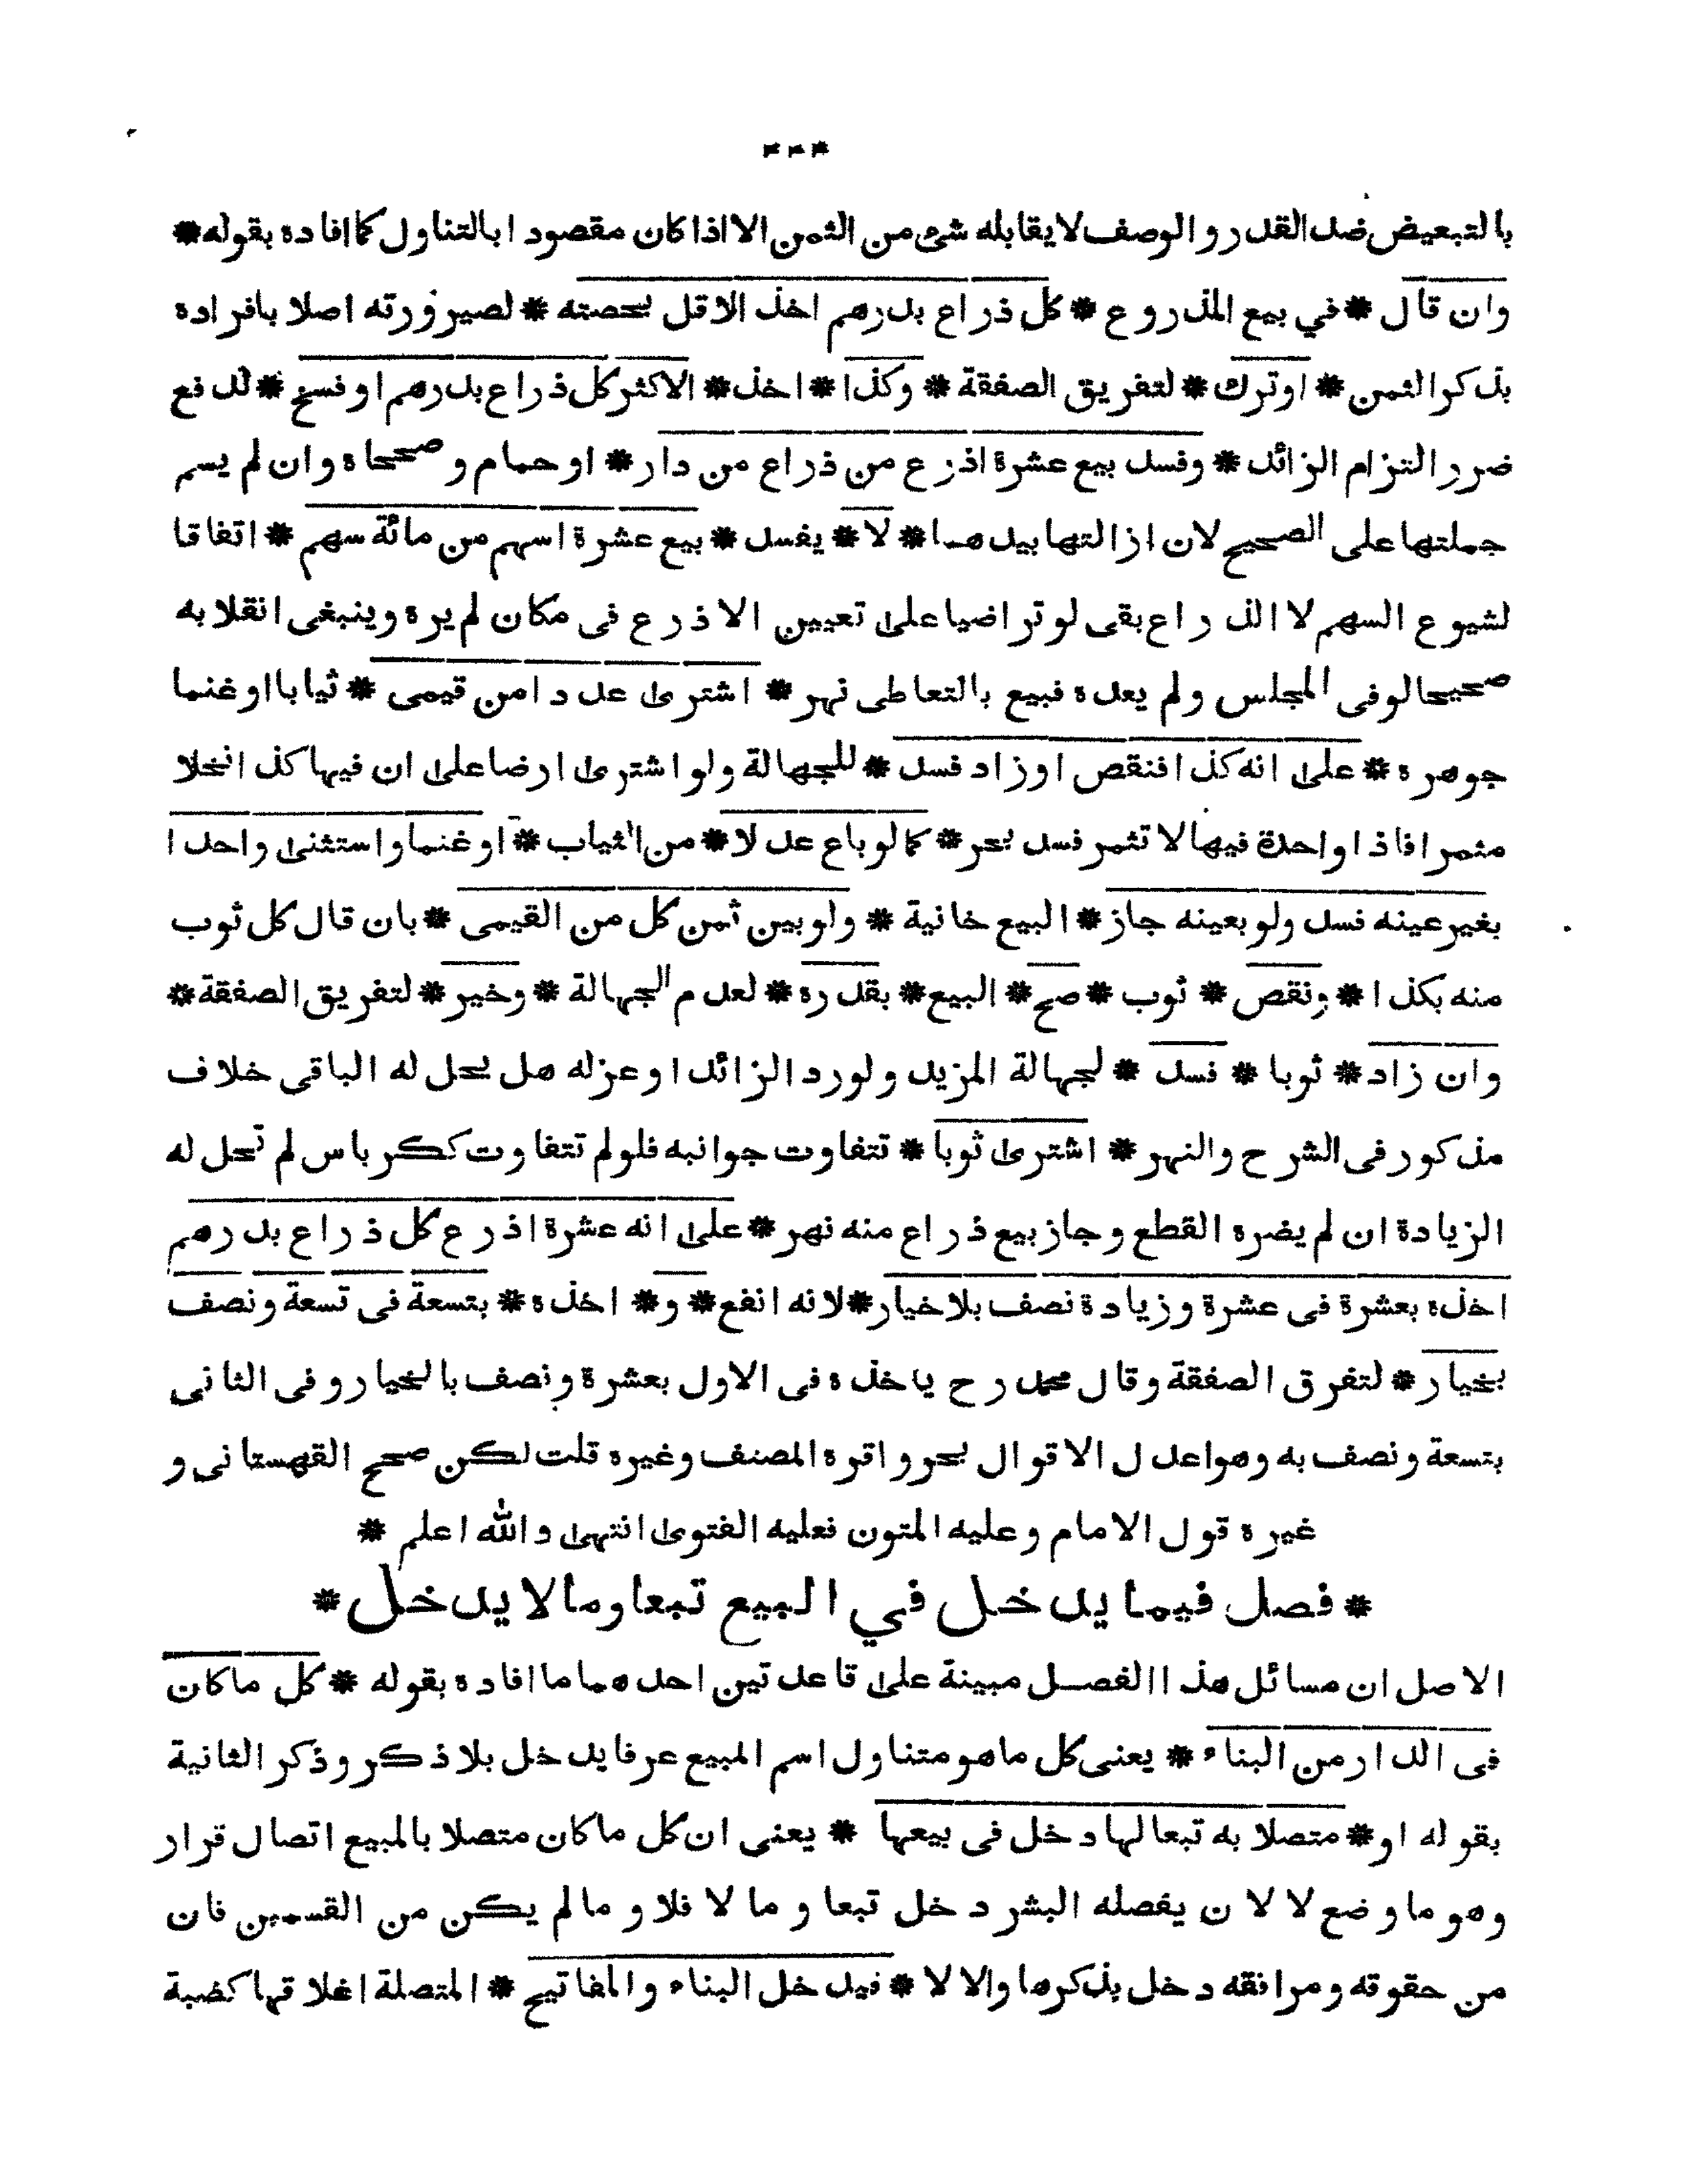 بالتبعيض ضد القدر والوصف لا يقابله شئ من الثمن الا اذا كان مقصودا بالتناول كما افاده بقوله *
وان قال * في بيع المذروع * كل ذراع بدرهم اخذ الاقل بحصته * لصيرورته اصلا بافراده
بذكر الثمن * او ترك * لتفريق الصفقة * وكذا * اخذ * الاكثر كل ذراع بدرهم او فسخ * لدفع
ضرر التزام الزائد * وفسد بيع عشرة اذرع من ذراع من دار * او حمام وصححاه وان لم يسم
جملتها على الصحيح لان ازالتها بيدهما * لا * يفسد * بيع عشرة اسهم من مائة سهم * اتفاقا
لشيوع السهم لا الذراع بقى لو تراضيا على تعيين الاذرع فى مكان لم يره وينبغى انقلابه
صحيحا لو فى المجلس ولم يعده فبيع بالتعاطى نهر * اشترى عددا من قيمى * ثيابا او غنما
جوهره * على انه كذا فنقص او زاد فسد * للجهالة ولو اشترى ارضا على ان فيها كذا نخلا
مثمرا فاذا واحدة فيها لا تثمر فسد بحر * كما لو باع عدلا * من الثياب * او غنما واستثنى واحدا
بغير عينه فسد ولو بعينه جاز * البيع خانية * ولو بين ثمن كل من القيمى * بان قال كل ثوب
منه بكذا * ونقص * ثوب * صح * البيع * بقدره * لعدم الجهالة * وخير * لتفريق الصفقة *
وان زاد * ثوبا * فسد * لجهالة المزيد ولو رد الزائد او عزله هل يحل له الباقى خلاف
مذكور فى الشرح والنهر * اشترى ثوبا * تتفاوت جوانبه فلو لم تتفاوت ككرباس لم تحل له
الزيادة ان لم يضره القطع وجاز بيع ذراع منه نهر * على انه عشرة اذرع كل ذراع بدرهم
اخذه بعشرة فى عشرة وزيادة نصف بلا خيار * لانه انفع * و * اخذه * بتسعة فى تسعة ونصف
بخيار * لتفرق الصفقة وقال محمد رح ياخذه فى الاول بعشرة ونصف بالخيار وفى الثانى
بتسعة ونصف به وهو اعدل الاقوال بحر واقره المصنف وغيره قلت لكن صحح القهستانى و
غيره قول الامام وعليه المتون فعليه الفتوى انتهى والله اعلم *
* فصل فيما يدخل في البيع تبعا وما لا يدخل *
الاصل ان مسائل هذا الفصل مبينة على قاعدتين احدهما ما افاده بقوله * كل ما كان
فى الدار من البناء * يعنى كل ما هو متناول اسم المبيع عرفا يدخل بلا ذكر وذكر الثانية
بقوله او * متصلا به تبعا لها دخل فى بيعها * يعنى ان كل ما كان متصلا بالمبيع اتصال قرار
وهو ما وضع لا لان يفصله البشر دخل تبعا وما لا فلا وما لم يكن من القسمين فان
من حقوقه ومرافقه دخل بذكرها والا لا * فيدخل البناء والمفاتيح * المتصلة اغلاقها كضبة